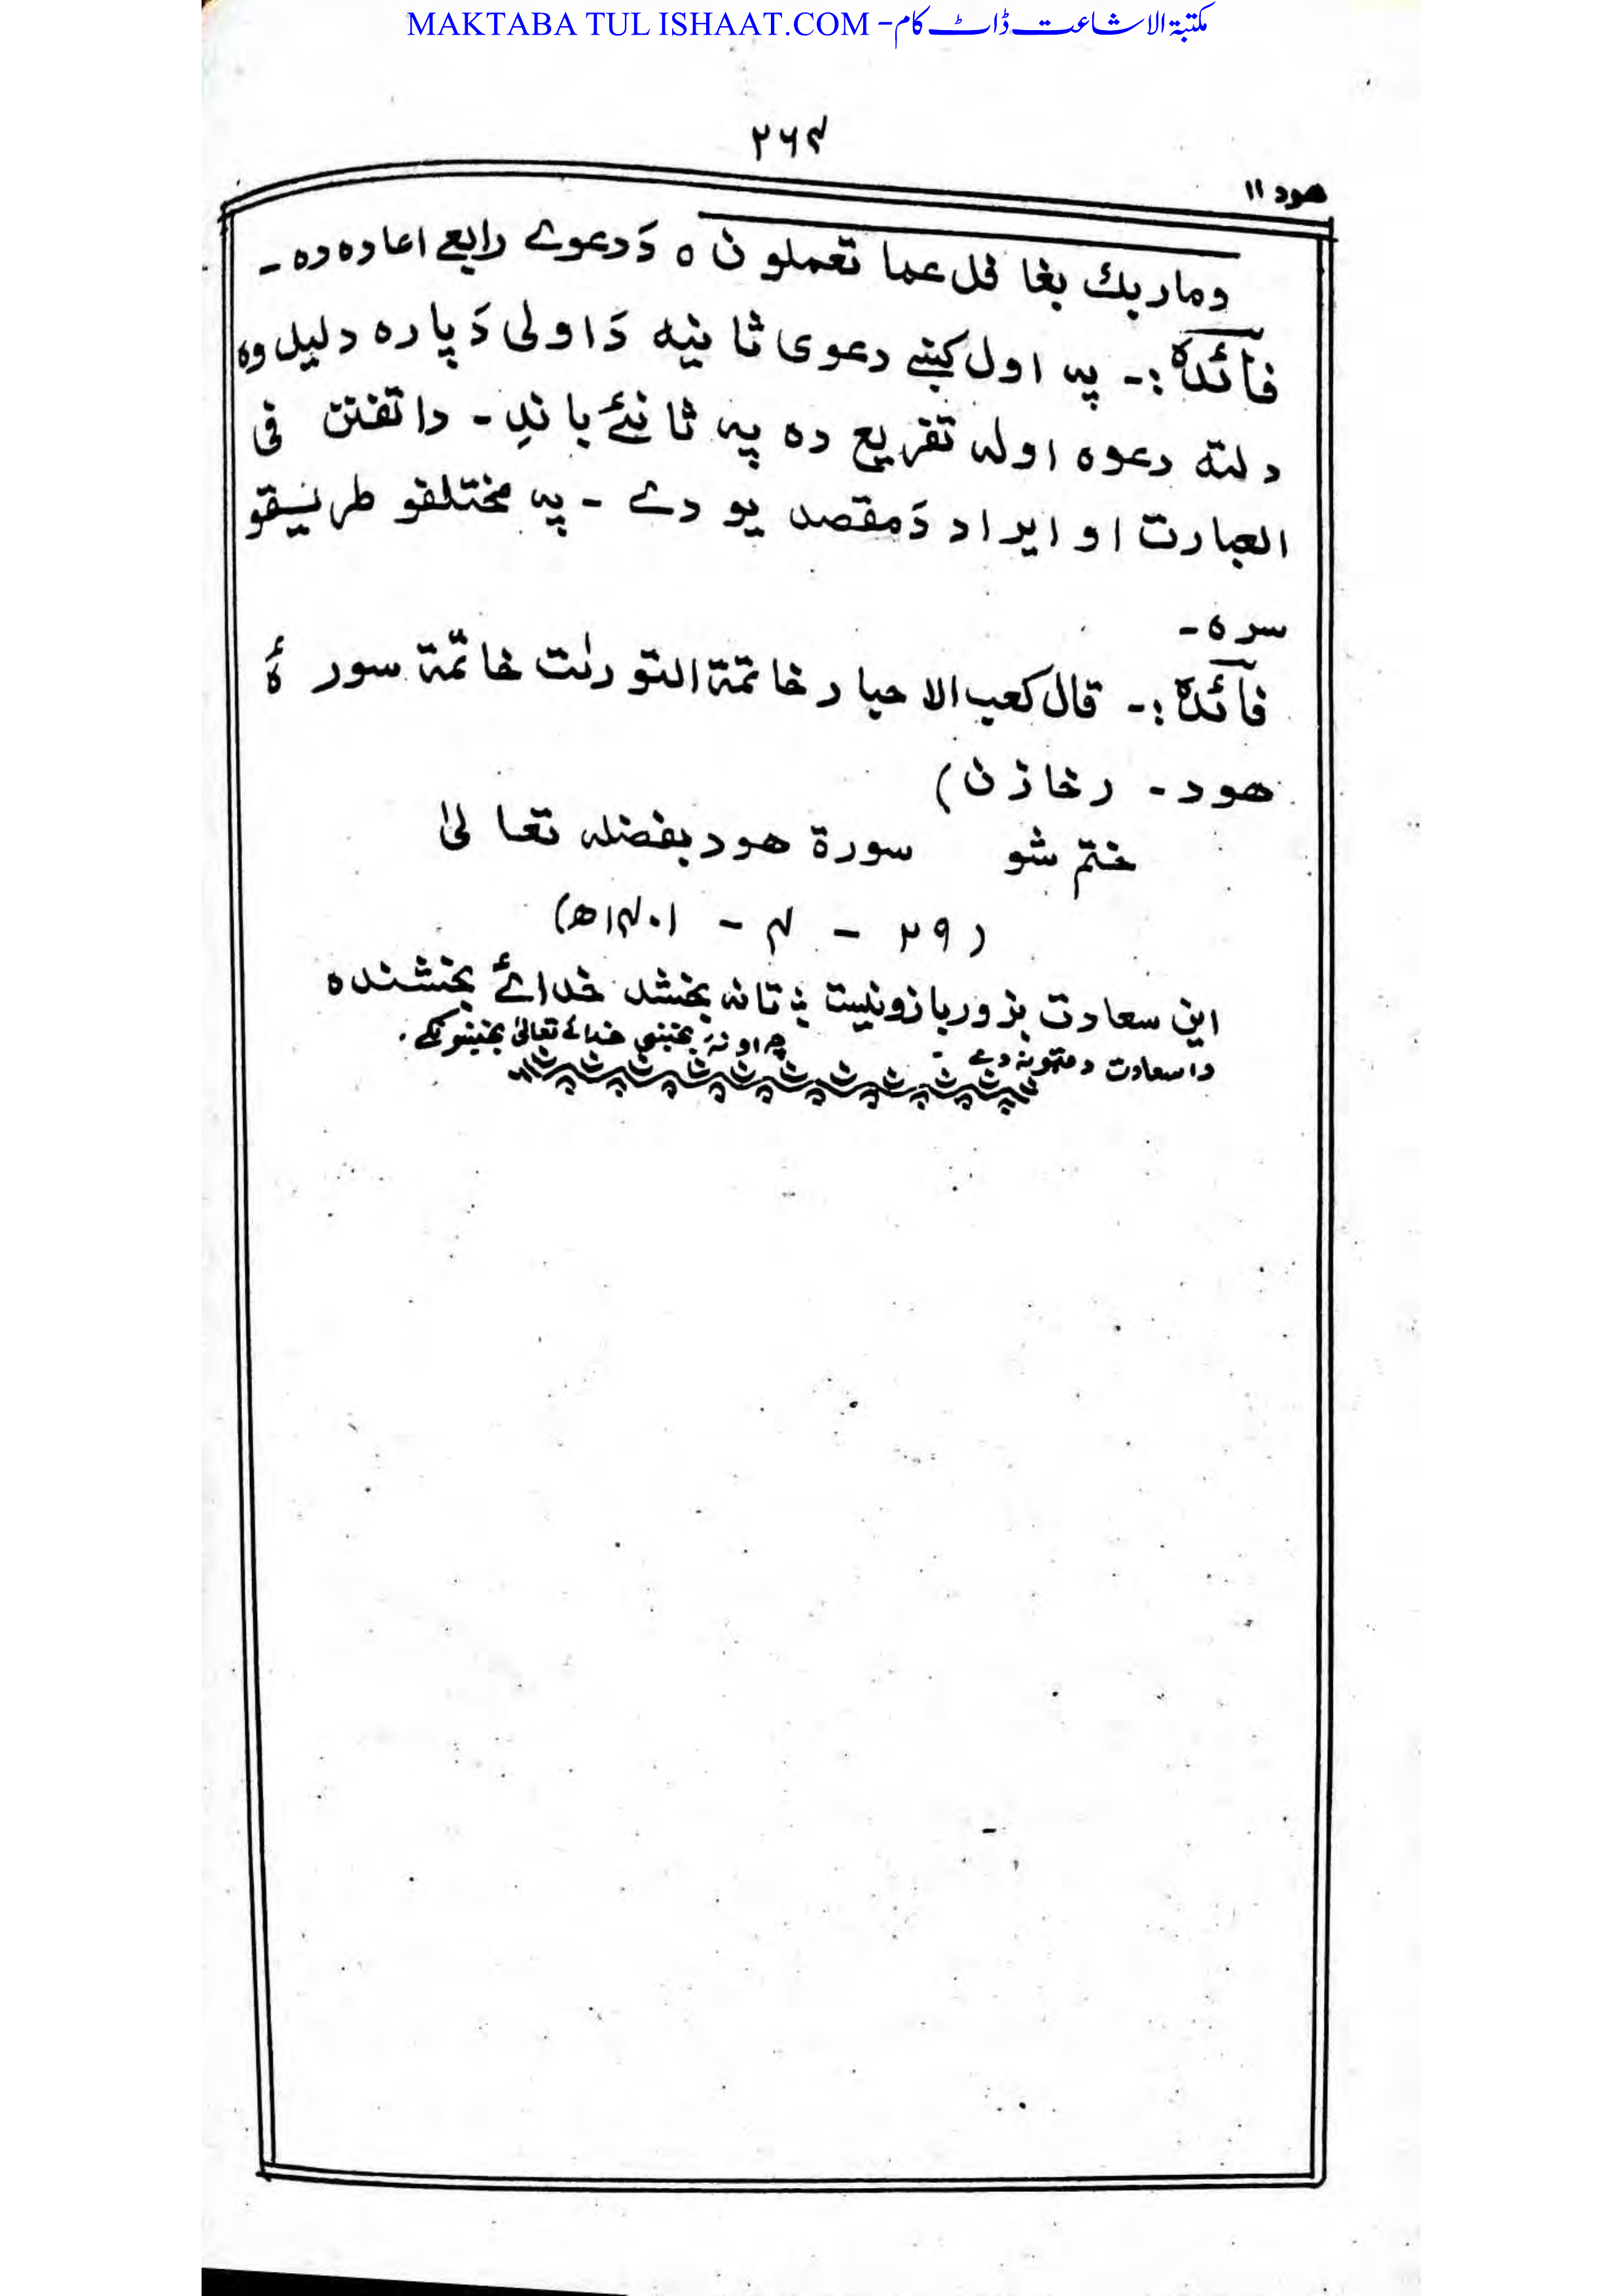 MAKTABA TUL ISHAAT.COM -مکتبۃ الاشاعت ڈاٹ کام
۲۶۴
هود ۱۱
وما ربك بغافل عما تعملون ه دَ دعوے رابعے اعاده ده -
فائدة :- په اول کښے دعوی ثانیه دَ اولی دَ پاره دلیل وه
دلته دعوه اوله تفریع ده په ثانیے باندِ - دا تفنن فی
العبارت او ایراد دَ مقصد یو دے - په مختلفو طریقو
سره -
فائدة :- قال كعب الاحبار خاتمة التورٰت خاتمة سورةُ
هود - (خازن)
ختم شو سورة هود بفضله تعالیٰ
(۲۹ - ۴ - ۱۴۰۱ھ)
این سعادت بزور بازو نیست ؛ تا نه بخشد خدائے بخشنده
دا سعادت د متو نه دے - چه او نه بخښی خدائے تعالیٰ بخښونکے .